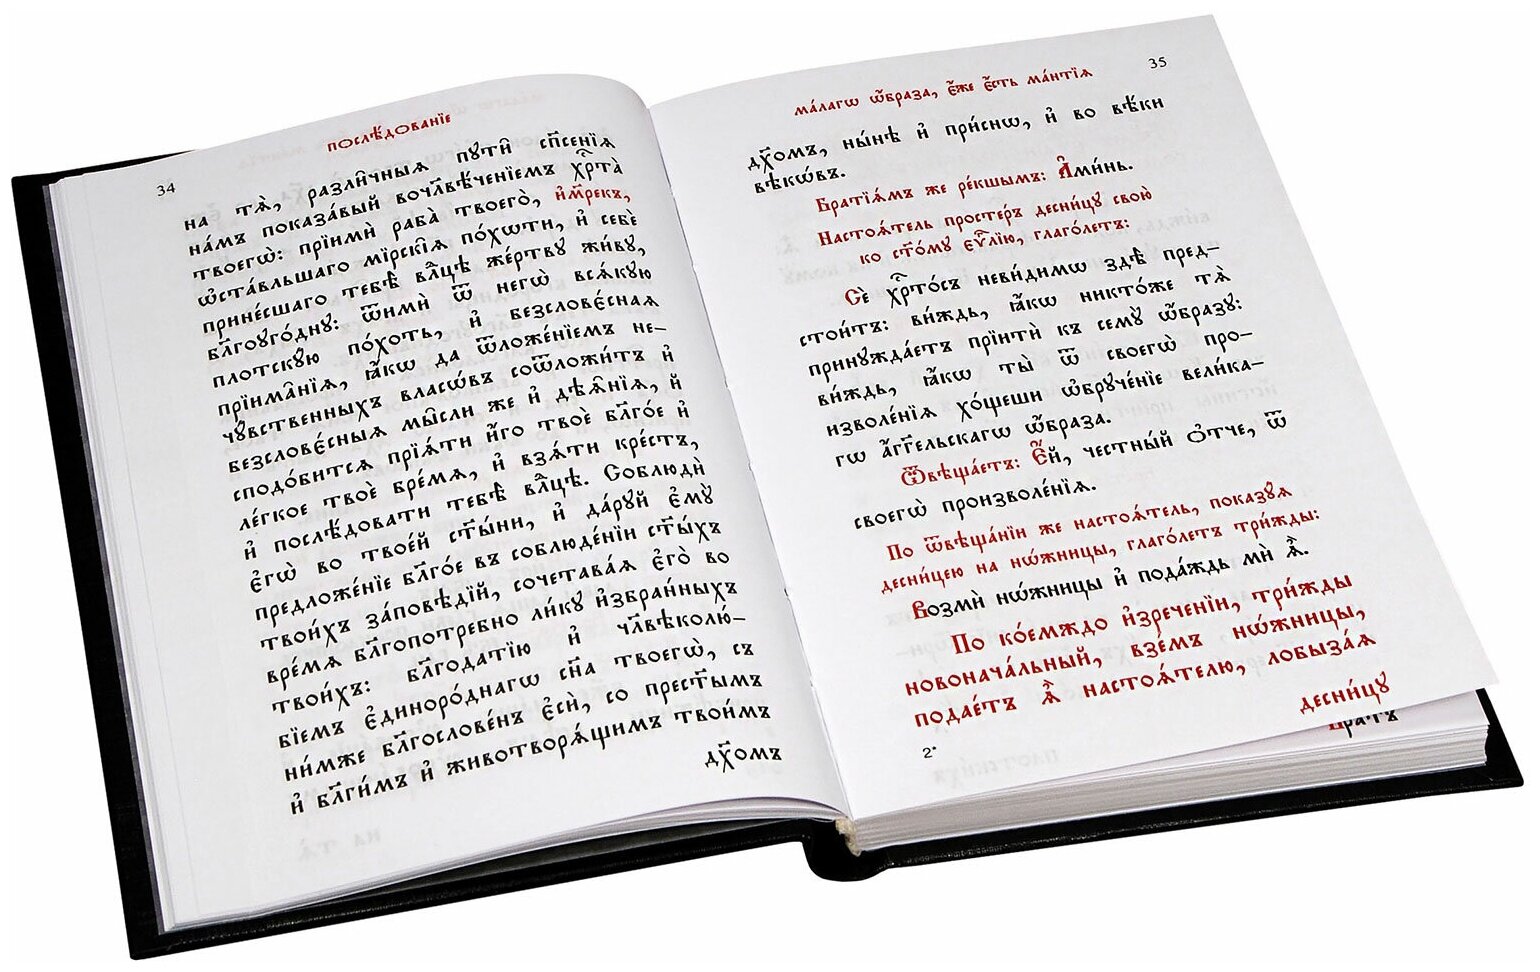 34
послѣ́дованїе
на тѧ̀, разли̑чныѧ пꙋти̑ сп҃се́нїѧ
на́мъ показа́вый вочл҃вѣ́ченїемъ хрⷭ҇та̀
твоегѡ̀: прїимѝ раба̀ твоего̀, и҆мⷬ҇рекъ,
ѡ҆ста́вльшаго мїрскі̑ѧ по́хѡти, и҆ себѐ
прине́сшаго тебѣ̀ влⷣцѣ же́ртвꙋ жи́вꙋ,
бл҃гоꙋго́днꙋ: ѿимѝ ѿ негѡ̀ всѧ́кꙋю
плотскꙋ́ю по́хоть, и҆ безслове́сная
прїима̑нїѧ, ꙗ҆́кѡ да ѿложе́нїемъ не-
чꙋ́вственныхъ власѡ́въ соѿложи́тъ и҆
безслове̑сныѧ мы̑сли же и҆ дѣѧ̑нїѧ, и҆
сподо́битсѧ прїѧ́ти и҆́го твоѐ бл҃го́е и҆
ле́гкое твоѐ бре́мѧ, и҆ взѧ́ти кре́стъ,
и҆ послѣ́довати тебѣ̀ влⷣцѣ. Соблюдѝ
є҆го̀ во твое́й ст҃ы́ни, и҆ да́рꙋй є҆мꙋ̀
предложе́нїе бл҃го́е въ соблюде́нїи ст҃ы́хъ
твои́хъ за́повѣдїй, сочетава́ѧ є҆го̀ во
вре́мѧ бл҃гопотре́бно ли́кꙋ и҆збра́нныхъ
твои́хъ: бл҃года́тїю и҆ чл҃вѣколю́-
бїемъ є҆диноро́днагѡ сн҃а твоегѡ̀, съ
ни́мже бл҃гослове́нъ є҆сѝ, со прест҃ы́мъ
и҆ бл҃ги́мъ и҆ животворѧ́щимъ твои́мъ
дх҃омъ
35
ма́лагѡ ѡ҆́браза, є҆́же є҆́сть ма́нтїѧ
дх҃омъ, ны́нѣ и҆ при́снѡ, и҆ во вѣ́ки
вѣкѡ́въ.
Бра́тїѧмъ же ре́кшымъ: А҆ми́нь.
Настоѧ́тель просте́ръ десни́цꙋ свою̀
ко ст҃о́мꙋ є҆ѵⷢ҇лїю, глаго́летъ:
Сѐ хрⷭ҇то́съ неви́димѡ здѣ̀ пред-
стои́тъ: ви́ждь, ꙗ҆́кѡ никто́же тѧ̀
принꙋжда́етъ прїитѝ къ семꙋ̀ ѡ҆́бразꙋ:
ви́ждь, ꙗ҆́кѡ ты̀ ѿ своегѡ̀ про-
изволе́нїѧ хо́щеши ѡ҆брꙋче́нїе вели́ка-
гѡ а҆́гг҃льскагѡ ѡ҆́браза.
Ѿвѣща́етъ: Є҆́й, честны́й ѻ҆́тче, ѿ
своегѡ̀ произволе́нїѧ.
По ѿвѣща́нїи же настоѧ́тель, показꙋ́ѧ
десни́цею на нѡ́жницы, глаго́летъ три́жды:
Возмѝ нѡ́жницы и҆ пода́ждь мѝ ѧ҆̀.
По ко́емждо и҆зрече́нїи, три́жды
новонача́льный, взе́мъ нѡ́жницы,
подае́тъ ѧ҆̀ настоѧ́телю, лобыза́ѧ
десни́цꙋ
2*